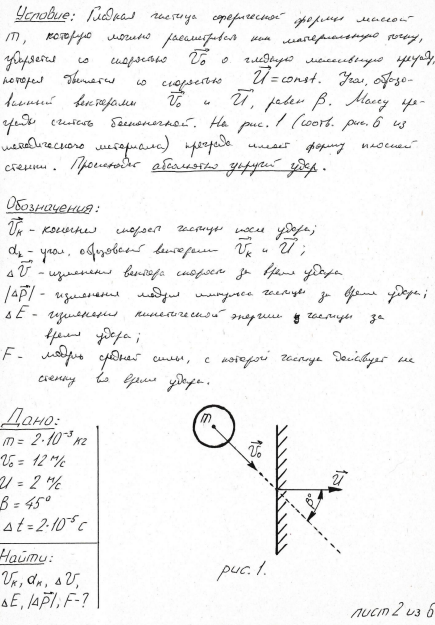 Условие: Гладкая частица сферической формы массой
m, которую можно рассматривать как материальную точку,
ударяется со скоростью V₀ о гладкую массивную преграду,
которая движется со скоростью U = const. Угол, образо-
ванный векторами V₀ и U, равен β. Массу пре-
грады считать бесконечной. На рис. 1 (соотв. рис. 6 из
методического материала) преграда имеет форму плоской
стенки. Происходит абсолютно упругий удар.
Обозначения:
Vк - конечная скорость частицы после удара;
αк - угол, образованный векторами Vк и U;
ΔV - изменение вектора скорости за время удара
|ΔP| - изменение модуля импульса частицы за время удара;
ΔE - изменение кинетической энергии частицы за
время удара;
F - модуль средней силы, с которой частица действует на
стенку во время удара.
Дано:
m = 2·10⁻³ кг
V₀ = 12 м/с
U = 2 м/с
β = 45°
Δt = 2·10⁻⁵ с
Найти:
Vк, αк, ΔV,
ΔE, |ΔP|, F-?
m
V₀
U
β°
рис. 1.
лист 2 из 6